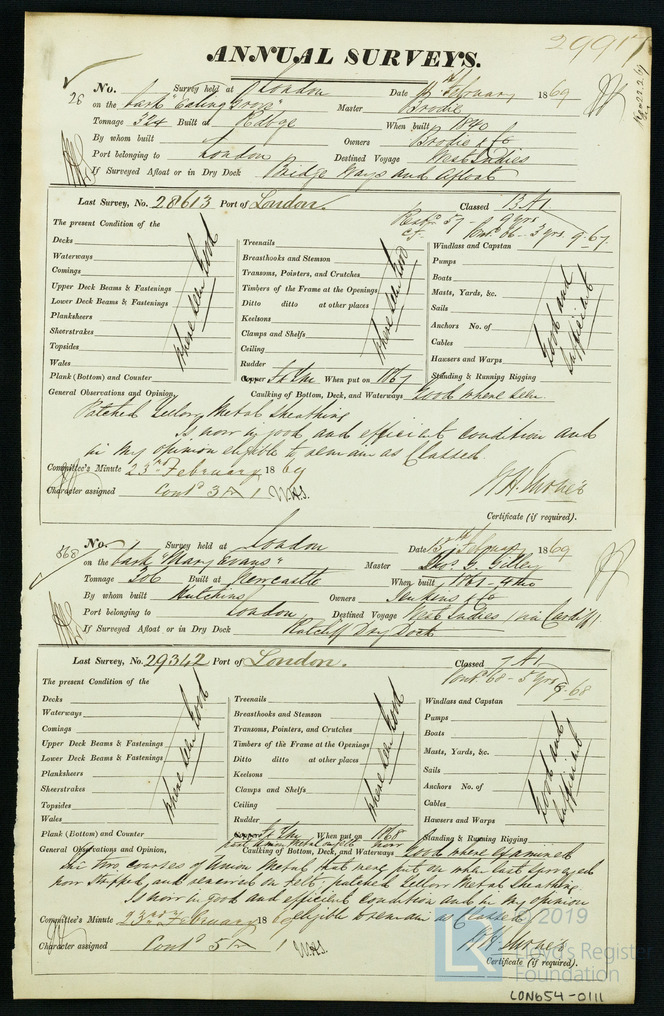 29917
ANNUAL SURVEYS.
Rep 22.2.69
26 No. Survey held at London Date 16th February 1869
on the bark "Ealing Grove" Master Brodie
Tonnage 324 Built at When built 1840
By whom built Owners Brodie & Co
Port belonging to London Destined Voyage West Indies
If Surveyed Afloat or in Dry Dock Bridge Ways and afloat
Last Survey, No. 28613 Port of London. Classed
57 - 9 yrs
3 yrs 9-67
The present Condition of the
Decks
Waterways
Comings
Upper Deck Beams & Fastenings
Lower Deck Beams & Fastenings
Planksheers
Sheerstrakes
Topsides
Wales
Plank (Bottom) and Counter
where seen Good
Treenails
Breasthooks and Stemson
Transoms, Pointers, and Crutches
Timbers of the Frame at the Openings
Ditto ditto at other places
Keelsons
Clamps and Shelfs
Ceiling
Rudder
Copper When put on 1867
where seen Good
Windlass and Capstan
Pumps
Boats
Masts, Yards, &c.
Sails
Anchors No. of
Cables
Hawsers and Warps
Standing & Running Rigging
Good and sufficient
General Observations and Opinion, Caulking of Bottom, Deck, and Waterways Good where seen
Patched Yellow Metal Sheathing
Is now in good and efficient condition and
in my opinion eligible to remain as Classed
Committee's Minute 23rd February 1869
Character assigned Contd 3 A 1
Certificate (if required).
568 No. Survey held at London Date 15th February 1869
on the bark "Mary Evans" Master Thos. G. Gilley
Tonnage 306 Built at Newcastle When built 1861 - 4 mo
By whom built Hutchins Owners Jenkins & Co
Port belonging to London Destined Voyage West Indies via Cardiff
If Surveyed Afloat or in Dry Dock Ratcliff Dry Dock
Last Survey, No. 29342 Port of London. Classed 7 A1
Contd 68 - 5 yrs 8-68
The present Condition of the
Decks
Waterways
Comings
Upper Deck Beams & Fastenings
Lower Deck Beams & Fastenings
Planksheers
Sheerstrakes
Topsides
Wales
Plank (Bottom) and Counter
where seen Good
Treenails
Breasthooks and Stemson
Transoms, Pointers, and Crutches
Timbers of the Frame at the Openings
Ditto ditto at other places
Keelsons
Clamps and Shelfs
Ceiling
Rudder
When put on 1868
where seen Good
Windlass and Capstan
Pumps
Boats
Masts, Yards, &c.
Sails
Anchors No. of
Cables
Hawsers and Warps
Standing & Running Rigging
Good and sufficient
General Observations and Opinion, Caulking of Bottom, Decks, and Waterways Good where examined
two courses of Union Metal that were put on when last surveyed
now stripped, and renewed on felt, patched Yellow Metal Sheathing
Is now in good and efficient condition and in my opinion
Committee's Minute 23rd February 1869 eligible to remain as Classed
Character assigned Contd 5 A 1
Certificate (if required).
© 2019
Lloyd's Register
Foundation
LON654-0111